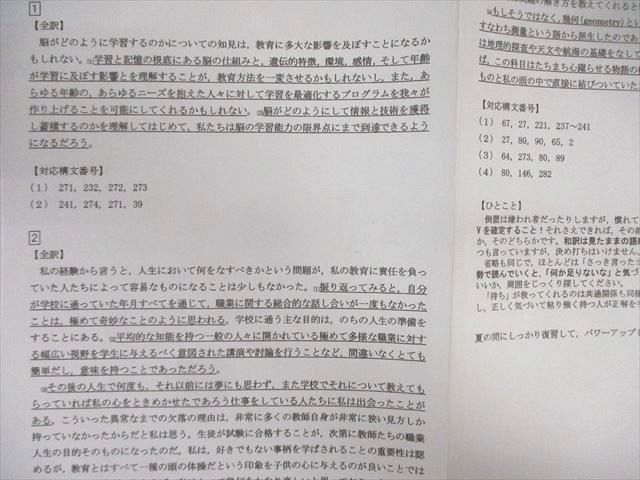 1
【全訳】
脳がどのように学習するのかについての知見は、教育に多大な影響を及ぼすことになるか
もしれない。(1)学習と記憶の根底にある脳の仕組みと、遺伝的特徴、環境、感情、そして年齢
が学習に及ぼす影響とを理解することが、教育方法を一変させるかもしれないし、また、あ
らゆる年齢の、あらゆるニーズを抱えた人々に対して学習を最適化するプログラムを我々が
作り上げることを可能にしてくれるかもしれない。(2)脳がどのようにして情報と技術を獲得
し蓄積するのかを理解してはじめて、私たちは脳の学習能力の限界点にまで到達できるよう
になるだろう。
【対応構文番号】
(1) 271, 232, 272, 273
(2) 241, 274, 271, 39
2
【全訳】
私の経験から言うと、人生において何をなすべきかという問題が、私の教育に責任を負っ
ていた人たちによって容易なものになることは少しもなかった。(1)振り返ってみると、自分
が学校に通っていた年月すべてを通じて、職業に関する総合的な話し合いが一度もなかった
ことは、極めて奇妙なことのように思われる。学校に通う主な目的は、のちの人生の準備を
することにある。(2)平均的な知能を持つ一般の人々に開かれている極めて多様な職業に対す
る幅広い視野を学生に与えるべく意図された講演や討論を行うことなど、間違いなくとても
簡単だし、意味を持つことであっただろう。
(3)その後の人生で何度も、それ以前には夢にも思わず、また学校でそれについて教えても
らっていれば私の心をときめかせたであろう仕事をしている人たちに私は出会ったことが
ある。こういった異常なまでの欠落の理由は、非常に多くの教師自身が非常に狭い見方しか
持っていなかったからだと私は思う。生徒が試験に合格することが、次第に教師たちの職業
人生の目的そのものになったのだ。私は、好きでもない事柄を学ばされることの重要性は認
めるが、教育とはすべて一種の頭の体操だという印象を子供の心に与えるのが良いことでは
の解き方を教えてくれると
(4)もしそうではなく、幾何(geometry)とい
すなわち測量という語から派生したのであ
は地理的探査や天文や航海の基礎をなして
ば、この科目はたちまち心躍らせる物語の
ものと私の頭の中で直接に結びついていた
【対応構文番号】
(1) 67, 27, 221, 237〜241
(2) 27, 80, 90, 65, 2
(3) 64, 273, 80, 89
(4) 80, 146, 282
【ひとこと】
倒置は嫌われ者だったりしますが、慣れて
Vを確定すること！それさえできれば、その前
か、そのどちらかです。和訳は見たままの語順
つも言っていますが、決め打ちはいけません。
省略も同じで、ほとんどは「さっき言ったか
勢で読んでいくと、「何か足りないな」と気づ
いいか、周囲をじっくり探してください。
「待ち」が救ってくれるのは共通関係も同様
し、正しく気づいて粘り強く待つ人が正解を手
夏の間にしっかり復習して、パワーアップし